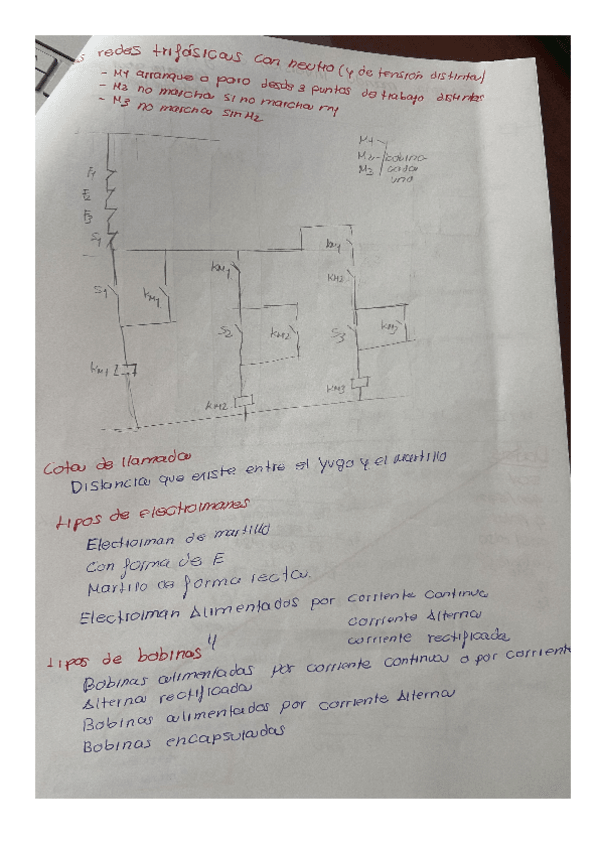 s redes trifásicas con neutro (y de tensión distinta)
- M1 arranque o paro desde 3 puntos de trabajo distintos
- M2 no marcha si no marcha M1
- M3 no marcha sin M2
M1
M2 cobina
M3 cada
una
F1
F2
F3
S1
S1
KM1
KM1
KM1
S2
KM2
KM2
KM1
KM2
S3
KM3
KM3
Cota de llamada
Distancia que existe entre el yugo y el martillo
tipos de electroimanes
Electroiman de martillo
Con forma de E
Martillo de forma recta.
Electroiman Alimentados por corriente continua
corriente Alterna
corriente rectificada
tipos de bobinas
Bobinas alimentadas por corriente continua o por corriente
Alterna rectificada
Bobinas alimentadas por corriente Alterna
Bobinas encapsuladas